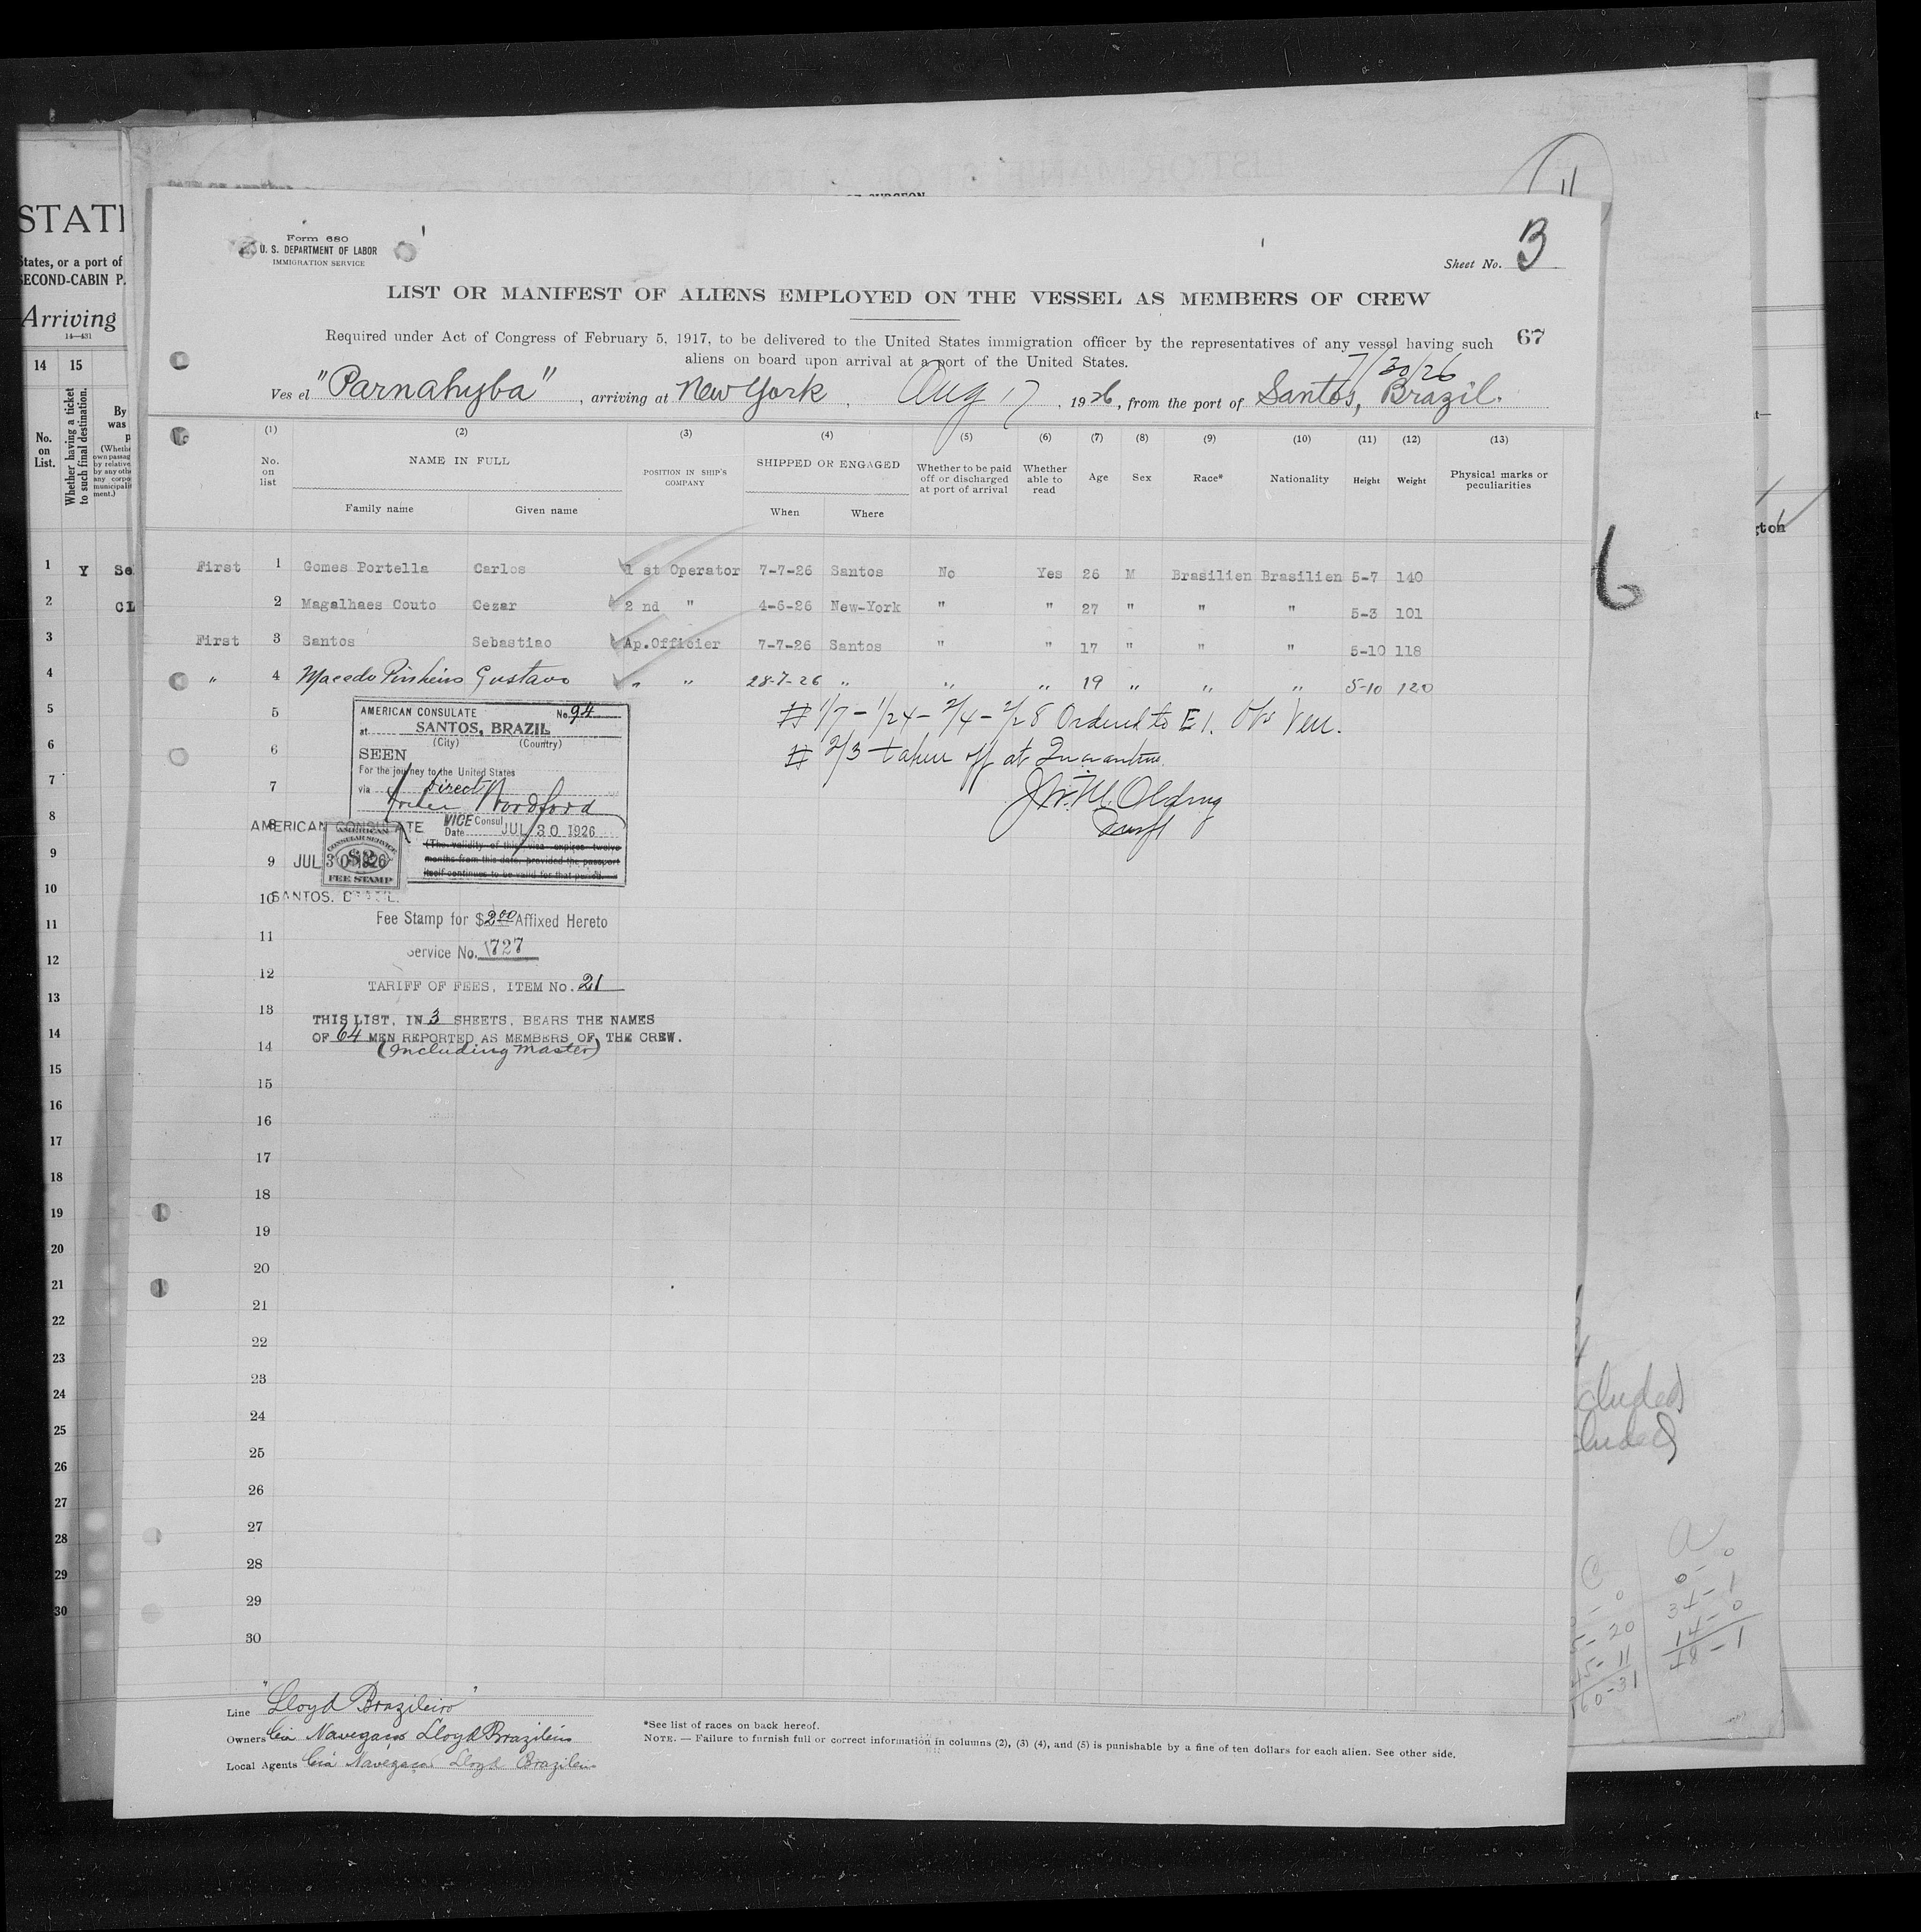 STATE
States, or a port of
SECOND-CABIN P
Arriving
14—431
14 15
No. on List.
Whether having a ticket to such final destination.
By
was
11
Form 680
U. S. DEPARTMENT OF LABOR
IMMIGRATION SERVICE
Sheet No. 3
LIST OR MANIFEST OF ALIENS EMPLOYED ON THE VESSEL AS MEMBERS OF CREW
Required under Act of Congress of February 5, 1917, to be delivered to the United States immigration officer by the representatives of any vessel having such
aliens on board upon arrival at a port of the United States.
67
7/30/26
Ves el "Parnahyba", arriving at New York, Aug 17, 1926, from the port of Santos, Brazil.
(1) (2) (3) (4) (5) (6) (7) (8) (9) (10) (11) (12) (13)
No. on list NAME IN FULL POSITION IN SHIP'S COMPANY SHIPPED OR ENGAGED Whether to be paid off or discharged at port of arrival Whether able to read Age Sex Race* Nationality Height Weight Physical marks or peculiarities
Family name Given name When Where
First 1 Gomes Portella Carlos 1 st Operator 7-7-26 Santos No Yes 26 M Brasilien Brasilien 5-7 140
2 Magalhaes Couto Cezar 2 nd " 4-6-26 New-York " " 27 " " " 5-3 101
First 3 Santos Sebastiao Ap.Officier 7-7-26 Santos " " 17 " " " 5-10 118
" 4 Macedo Pinheiro Gustavo " " 28-7-26 " " " 19 " " " 5-10 120
5
# 1/7 - 1/24 - 2/4 - 2/28 Ordered to E I. Obs Ven.
# 2/3 taken off at Quarantine.
AMERICAN CONSULATE No. 94
at SANTOS, BRAZIL
(City) (Country)
SEEN
For the journey to the United States
via Direct
Woodford
VICE Consul
Date JUL 30 1926
(The validity of this visa expires twelve
months from this date, provided the passport
itself continues to be valid for that period.
AMERICAN CONSULATE
JUL 30 1926
SANTOS, BRAZIL.
AMERICAN
CONSULAR SERVICE
$2
FEE STAMP
Fee Stamp for $2.00 Affixed Hereto
Service No. 1727
TARIFF OF FEES, ITEM No. 21
THIS LIST, IN 3 SHEETS, BEARS THE NAMES
OF 64 MEN REPORTED AS MEMBERS OF THE CREW.
(Including Master)
6
7
8
9
10
11
12
13
14
15
16
17
18
19
20
21
22
23
24
25
26
27
28
29
30
Line "Lloyd Brazileiro"
Owners Cia Navegaçao Lloyd Brazileiro
Local Agents Cia Navegaçao Lloyd Brazileiro
*See list of races on back hereof.
NOTE. — Failure to furnish full or correct information in columns (2), (3) (4), and (5) is punishable by a fine of ten dollars for each alien. See other side.
6
gton
cluded
cluded
C
5-20
45-11
60-31
0-0
34-1
14-0
48-1